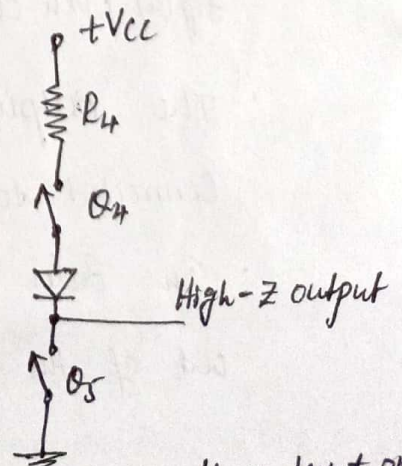 +Vcc
R4
Q4
High-Z output
Q5